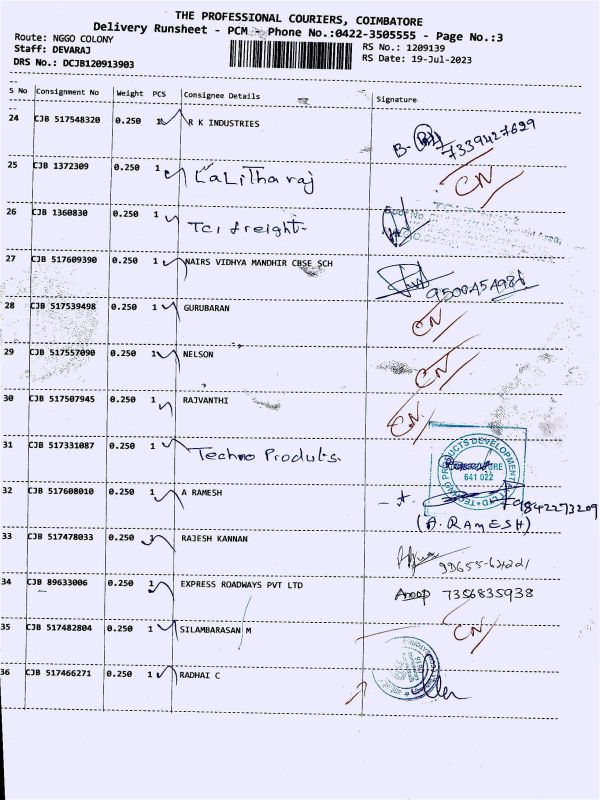 THE PROFESSIONAL COURIERS, COIMBATORE
Delivery Runsheet - PCM Phone No.:0422-3505555 - Page No.:3
Route: NGGO COLONY
RS No.: 1209139
Staff: DEVARAJ
RS Date: 19-Jul-2023
DRS No.: DCJB120913903
S No Consignment No Weight PCS Consignee Details Signature
24 CJB 517548320 0.250 1 R K INDUSTRIES
B- 7339427629
25 CJB 1372309 0.250 1 Lalitharaj CN
26 CJB 1360830 0.250 1 TCI freight-
27 CJB 517609390 0.250 1 NAIRS VIDHYA MANDHIR CBSE SCH
28 CJB 517539498 0.250 1 GURUBARAN CN
29 CJB 517557090 0.250 1 NELSON CN
30 CJB 517507945 0.250 1 RAJVANTHI CN
31 CJB 517331087 0.250 1 Techno Produts.
641 022
32 CJB 517608010 0.250 1 A RAMESH
9842273209
(A. RAMESH)
33 CJB 517478033 0.250 1 RAJESH KANNAN
34 CJB 89633006 0.250 1 EXPRESS ROADWAYS PVT LTD Anoop 7356835938
35 CJB 517482804 0.250 1 SILAMBARASAN M CN
36 CJB 517466271 0.250 1 RADHAI C